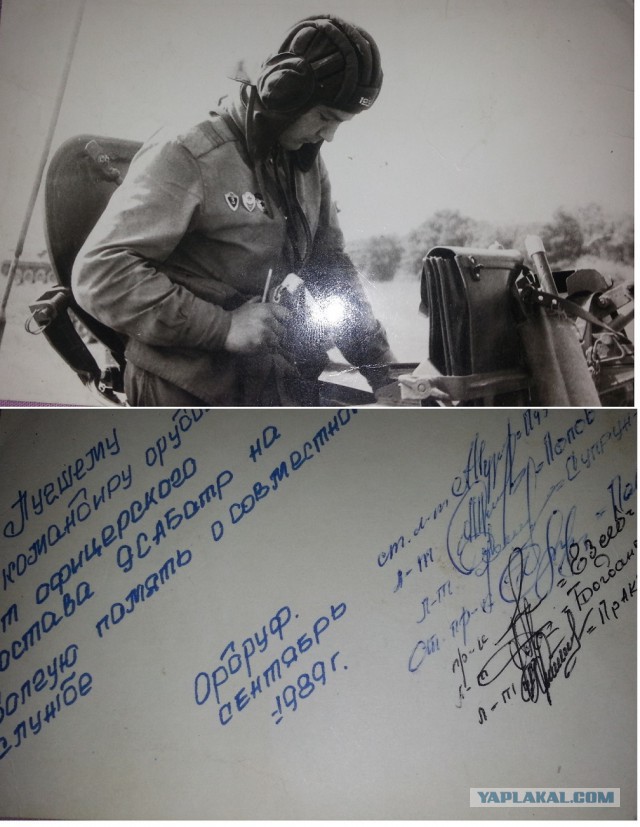 Лучшему
командиру оруди
т офицерского
остава 9САБатр на
олгую память о совместной
службе
Ордруф.
СЕНТЯБРЬ
-1989 г.
ст. л-т
л-т = Попов
л-т = Супрун
ст. пр-к
пр-к = Езеев=
л-т
л-т = Прак
YAPLAKAL.COM